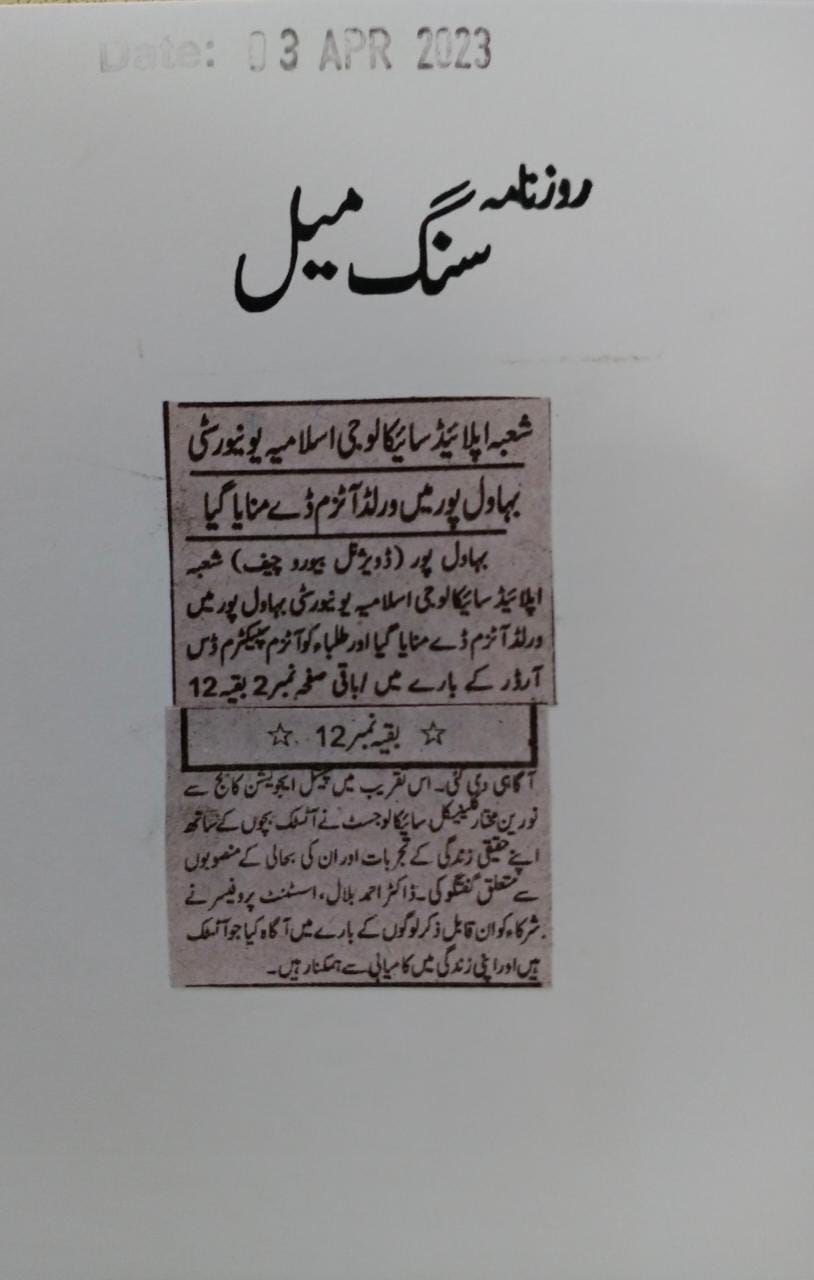 Date: 03 APR 2023
روزنامہ
سنگ میل
شعبہ اپلائیڈ سائیکالوجی اسلامیہ یونیورسٹی
بہاول پور میں ورلڈ آٹزم ڈے منایا گیا
بہاول پور (ڈویژنل بیورو چیف) شعبہ
اپلائیڈ سائیکالوجی اسلامیہ یونیورسٹی بہاول پور میں
ورلڈ آٹزم ڈے منایا گیا اور طلباء کو آٹزم سپیکٹرم ڈس
آرڈر کے بارے میں /باقی صفحہ نمبر 2 بقیہ 12
☆ بقیہ نمبر 12 ☆
آگاہی دی گئی۔ اس تقریب میں سپیشل ایجویشن کالج سے
نورین مختار کلینیکل سائیکالوجسٹ نے آٹسٹک بچوں کے ساتھ
اپنے حقیقی زندگی کے تجربات اور ان کی بحالی کے منصوبوں
سے متعلق گفتگو کی۔ ڈاکٹر احمد بلال، اسسٹنٹ پروفیسر نے
شرکاء کو ان قابل ذکر لوگوں کے بارے میں آگاہ کیا جو آٹسٹک
ہیں اور اپنی زندگی میں کامیابی سے ہمکنار ہیں۔